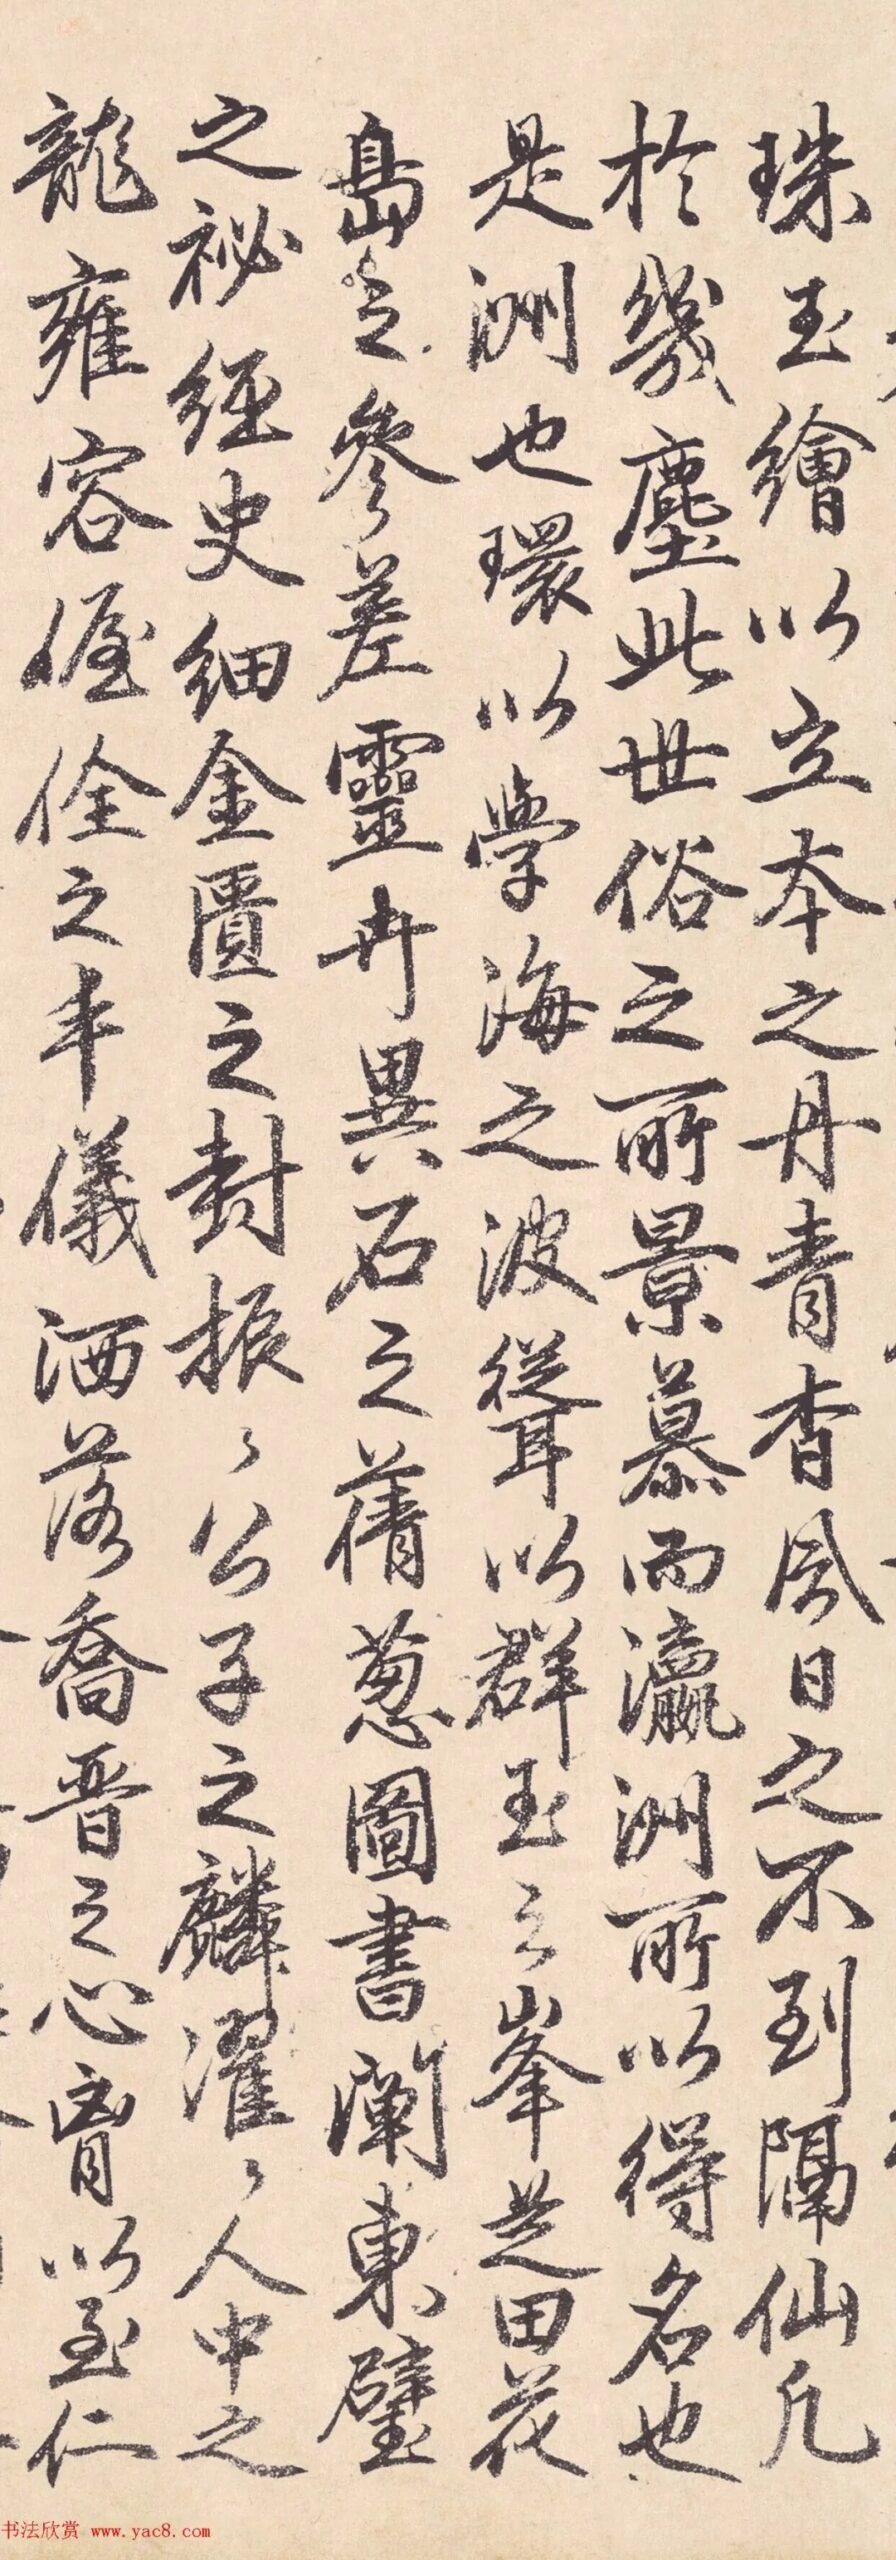 珠玉繪以立本之丹青杳風日之不到隔仙凡
於幾塵此世俗之所景慕而瀛洲所以得名也
是洲也環以學海之波聳以群玉之峯芝田花
島之參差靈卉異石之蒨葱圖書闡東壁
之祕經史紬金匱之封振〻公子之麟濯〻人中之
龍雍容偓佺之丰儀洒落喬晋之心胷以至仁
书法欣赏 www.yac8.com